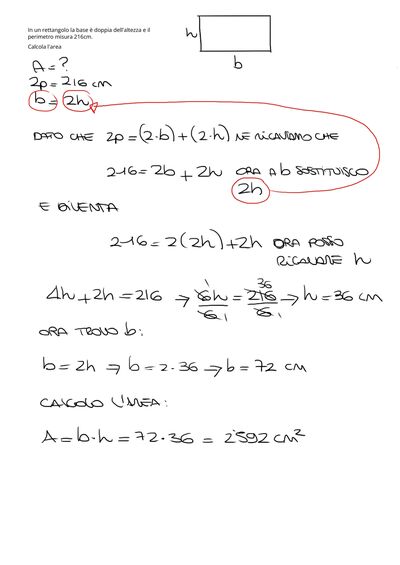 In un rettangolo la base è doppia dell'altezza e il
perimetro misura 216cm.
Calcola l'area
h
b
A = ?
2p = 216 cm
b = 2h
DATO CHE 2p = (2·b) + (2·h) NE RICAVIAMO CHE
216 = 2b + 2h ORA A b SOSTITUISCO
2h
E DIVENTA
216 = 2(2h) + 2h ORA POSSO
RICAVARE h
4h + 2h = 216 → 6h/6 = 216/6 → h = 36 cm
1 36
1 1
ORA TROVO b:
b = 2h → b = 2·36 → b = 72 cm
CALCOLO L'AREA:
A = b·h = 72·36 = 2592 cm²